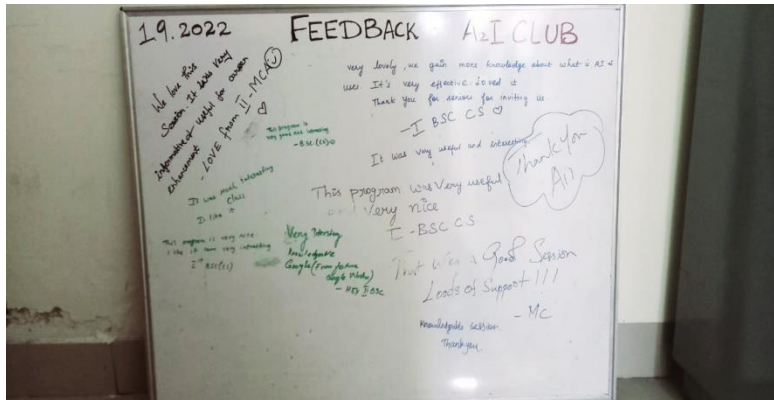 1.9.2022 FEEDBACK A2I CLUB
We love this
Session. It was very
Informative & useful for our
enhancement
- LOVE from II - MCA
very lovely. we gain more knowledge about what is AI &
uses. It's very effective. Loved it
Thank you for seniors for inviting us.
- I BSC CS
This program is
very good and interesting
- BSC (CS)
It was very useful and interesting
Thank you
All
It was much interesting
class
I like it
This program was very useful
and very nice
I - BSC CS
This program is very nice
I like it very interesting
BSC (CS)
Very Interesting
Knowledgeable
Google
II BSC
That was a Good Session
Loads of Support!!!
- MC
Knowledgable session
Thank you.